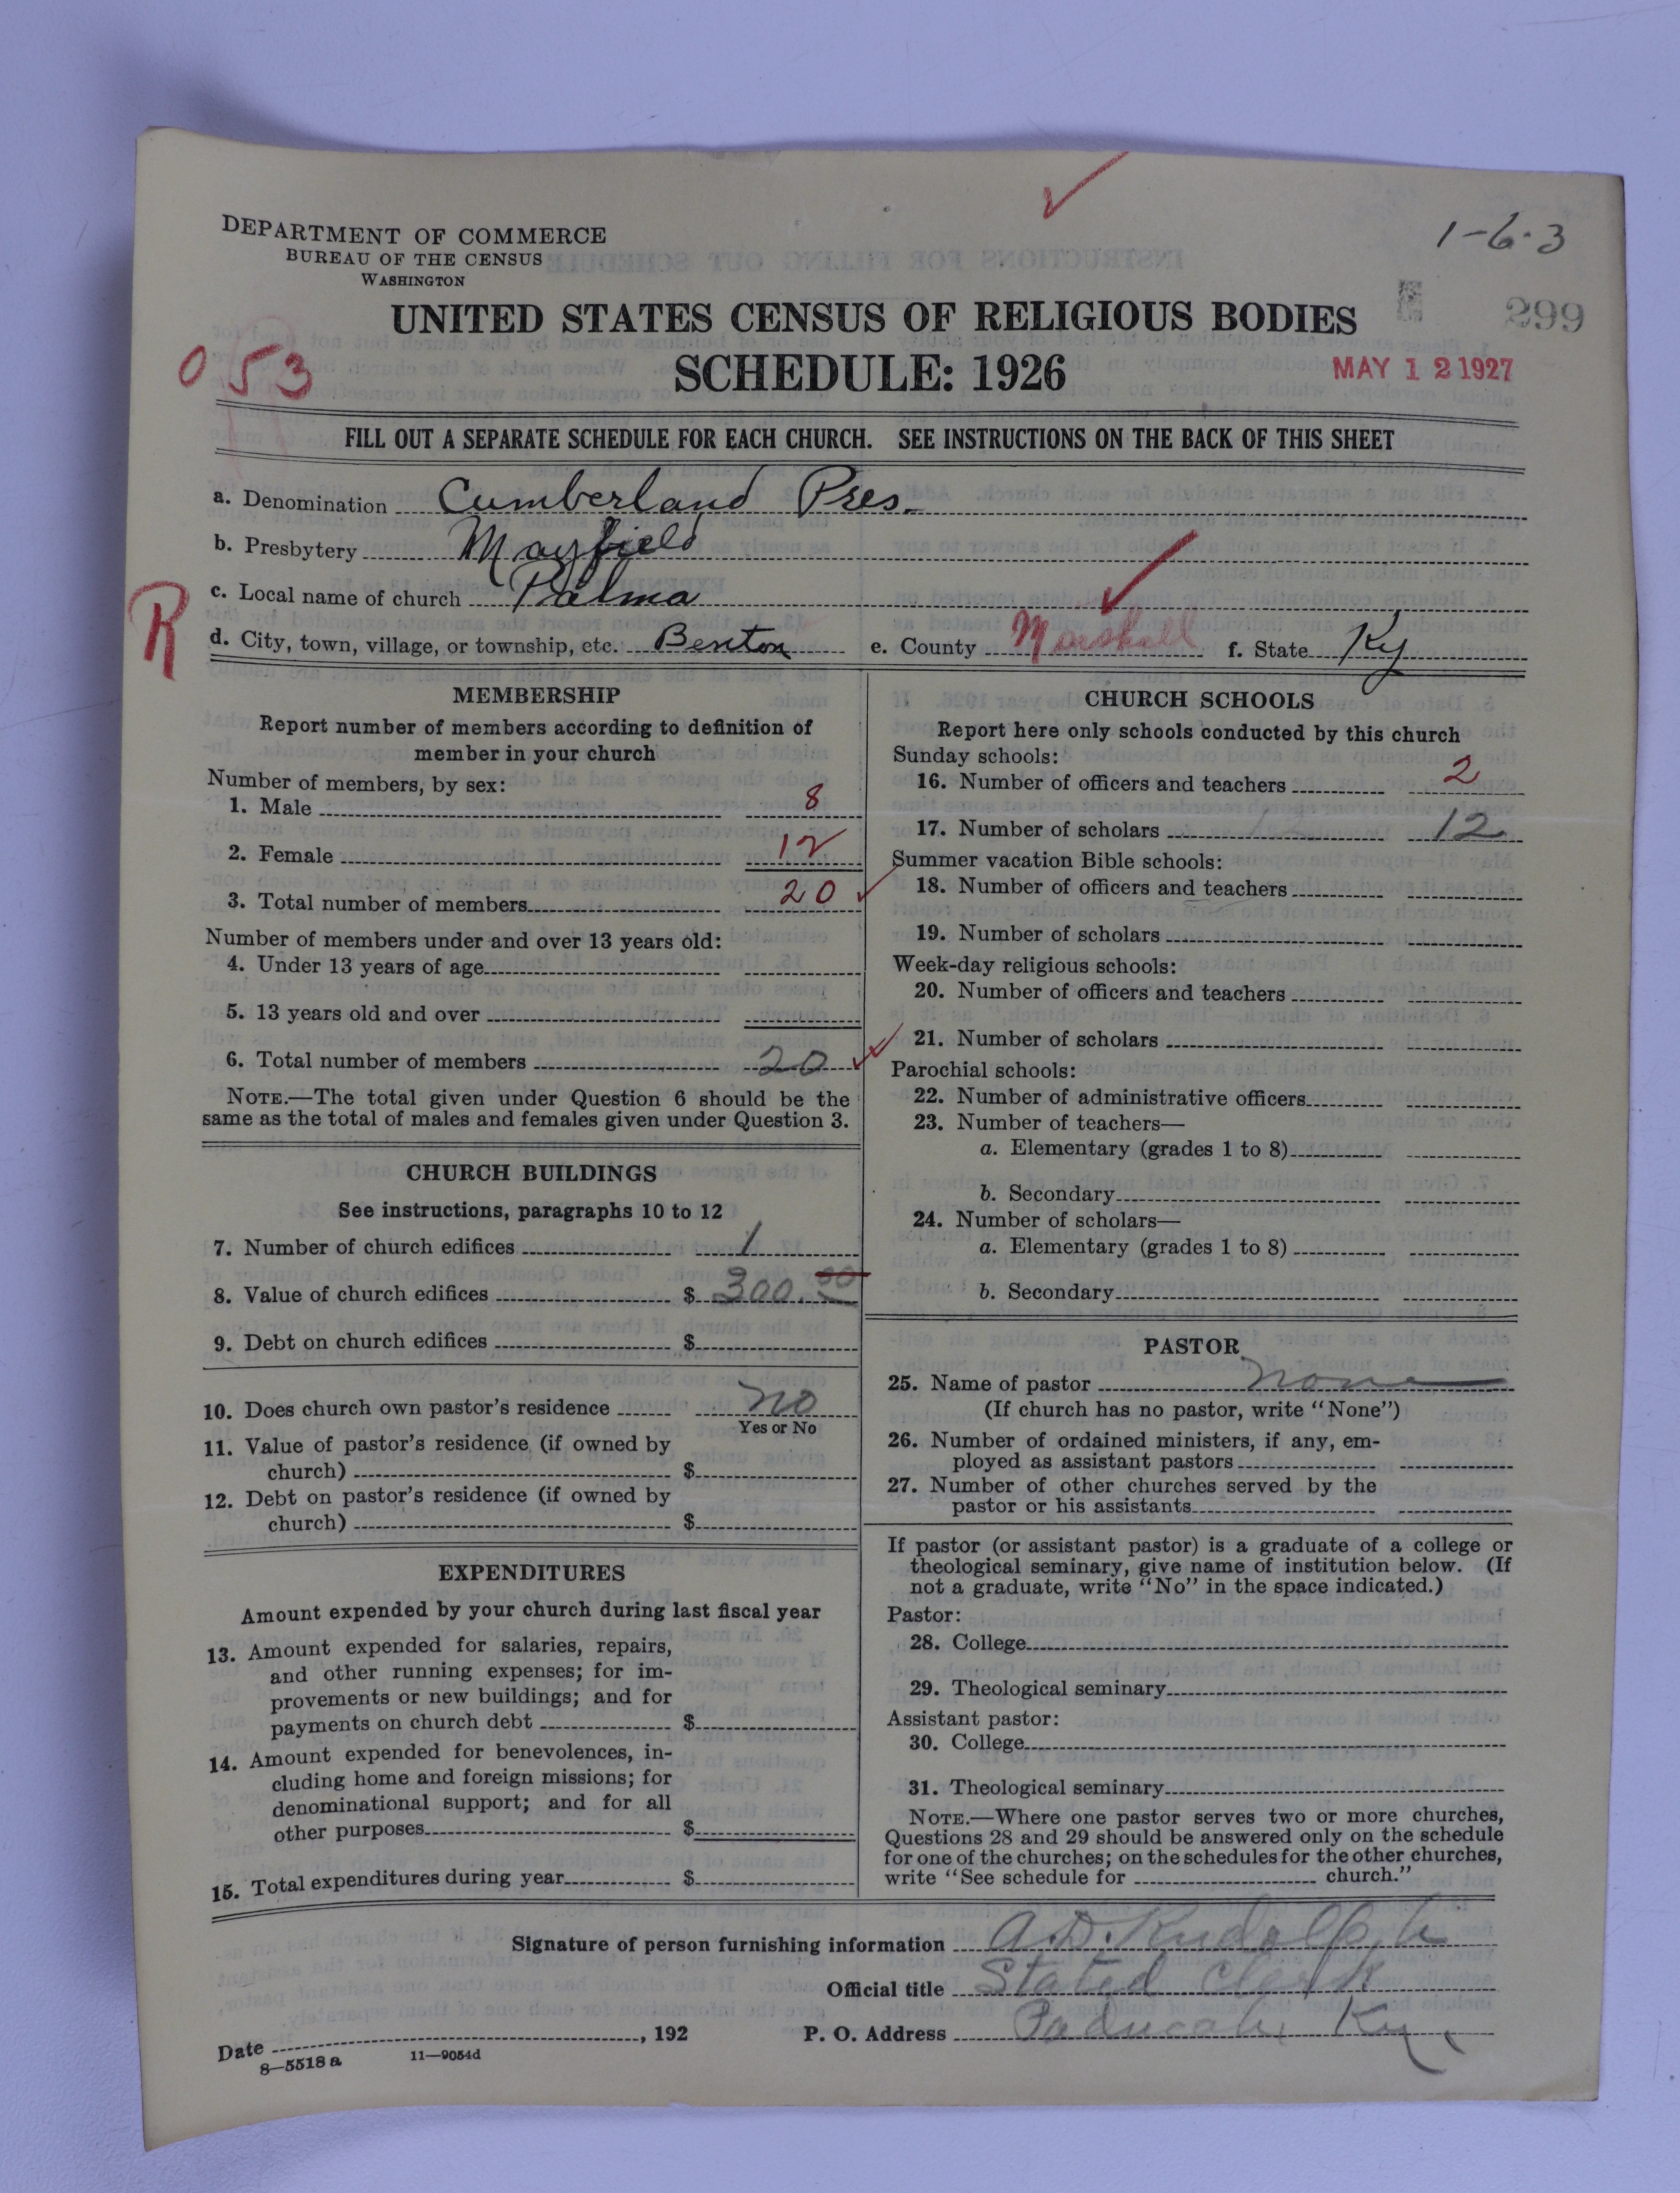 1-6-3
DEPARTMENT OF COMMERCE
BUREAU OF THE CENSUS
WASHINGTON
UNITED STATES CENSUS OF RELIGIOUS BODIES
299
SCHEDULE: 1926
MAY 12 1927
053
FILL OUT A SEPARATE SCHEDULE FOR EACH CHURCH. SEE INSTRUCTIONS ON THE BACK OF THIS SHEET
a. Denomination Cumberland Pres.
b. Presbytery Mayfield
c. Local name of church Palma
R
d. City, town, village, or township, etc. Benton e. County Marshall f. State Ky
MEMBERSHIP
Report number of members according to definition of
member in your church
Number of members, by sex:
1. Male 8
2. Female 12
3. Total number of members 20
Number of members under and over 13 years old:
4. Under 13 years of age
5. 13 years old and over
6. Total number of members 20
NOTE.—The total given under Question 6 should be the
same as the total of males and females given under Question 3.
CHURCH BUILDINGS
See instructions, paragraphs 10 to 12
7. Number of church edifices 1
8. Value of church edifices $ 300.00
9. Debt on church edifices $
10. Does church own pastor's residence No
Yes or No
11. Value of pastor's residence (if owned by
church) $
12. Debt on pastor's residence (if owned by
church) $
EXPENDITURES
Amount expended by your church during last fiscal year
13. Amount expended for salaries, repairs,
and other running expenses; for im-
provements or new buildings; and for
payments on church debt $
14. Amount expended for benevolences, in-
cluding home and foreign missions; for
denominational support; and for all
other purposes $
15. Total expenditures during year $
CHURCH SCHOOLS
Report here only schools conducted by this church
Sunday schools:
16. Number of officers and teachers 2
17. Number of scholars 12
Summer vacation Bible schools:
18. Number of officers and teachers
19. Number of scholars
Week-day religious schools:
20. Number of officers and teachers
21. Number of scholars
Parochial schools:
22. Number of administrative officers
23. Number of teachers—
a. Elementary (grades 1 to 8)
b. Secondary
24. Number of scholars—
a. Elementary (grades 1 to 8)
b. Secondary
PASTOR
25. Name of pastor None
(If church has no pastor, write "None")
26. Number of ordained ministers, if any, em-
ployed as assistant pastors
27. Number of other churches served by the
pastor or his assistants
If pastor (or assistant pastor) is a graduate of a college or
theological seminary, give name of institution below. (If
not a graduate, write "No" in the space indicated.)
Pastor:
28. College
29. Theological seminary
Assistant pastor:
30. College
31. Theological seminary
NOTE.—Where one pastor serves two or more churches,
Questions 28 and 29 should be answered only on the schedule
for one of the churches; on the schedules for the other churches,
write "See schedule for church."
Signature of person furnishing information A.D. Rudolph
Official title Stated Clerk
Date , 192 P. O. Address Paducah, Ky.
8—5518 a 11—9054d